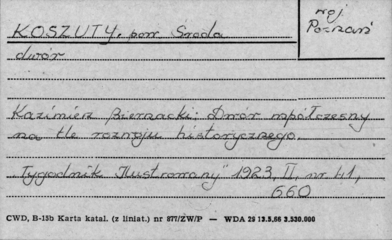 woj
Poznań
KOSZUTY, pow. Środa
dwór
Kazimierz Biernacki: Dwór współczesny
na tle rozwoju historycznego.
"Tygodnik Ilustrowany" 1923, II, nr 41,
660
CWD, B-15b Karta katal. (z liniat.) nr 877/ZW/P — WDA 29 13.5.66 3.530.000